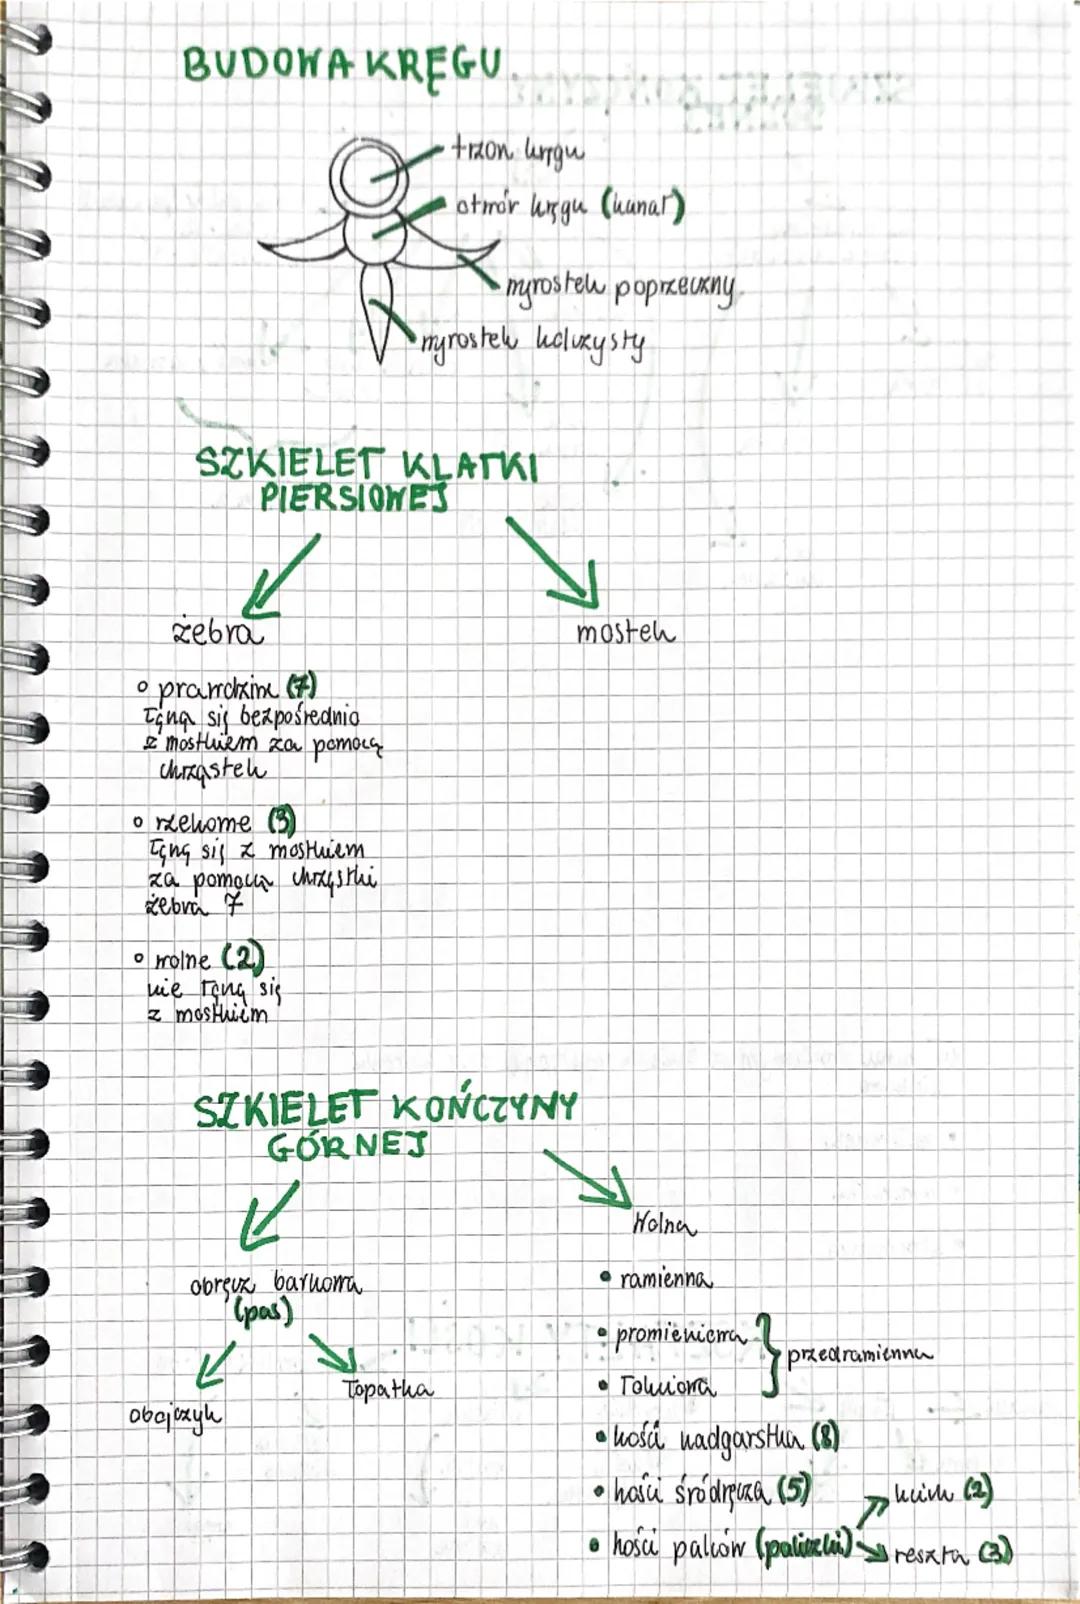 BUDOWA KRĘGU
trzon kręgu
otwór kręgu (kanał)
wyrostek poprzeczny
wyrostek kolczysty
SZKIELET KLATKI
PIERSIOWEJ
żebra
mostek
prawdziwe (7)
łączą się bezpośrednio
z mostkiem za pomocą
chrząstek
rzekome (3)
łączą się z mostkiem
za pomocą chrząstki
żebra 7
wolne (2)
nie łączą się
z mostkiem
SZKIELET KOŃCZYNY
GÓRNEJ
obręcz barkowa
(pas)
obojczyk
łopatka
Wolna
• ramienna
• promieniowa
• łokciowa
przedramienna
• kości nadgarstka (8)
• kości śródręcza (5)
• kości palców (paliczki)
kciuk (2)
reszta (3)